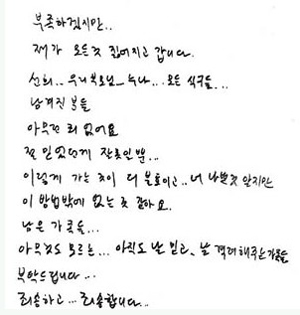 부족하겠지만..
제가 모든것 짊어지고 갑니다.
선희.. 우리부모님.. 누나.. 모든 식구들...
남겨진 분들
아무런 죄 없어요
전 믿었던게 잘못인 뿐...
이렇게 가는 것이 더 불효이고.. 너 나쁜것 알지만
이 방법밖에 없는 것 같아요.
남은 가족들...
아무것도 모르는... 아직도 날 믿고.. 날 격려해주는 가족들
부탁드립니다...
죄송하고... 죄송합니다...